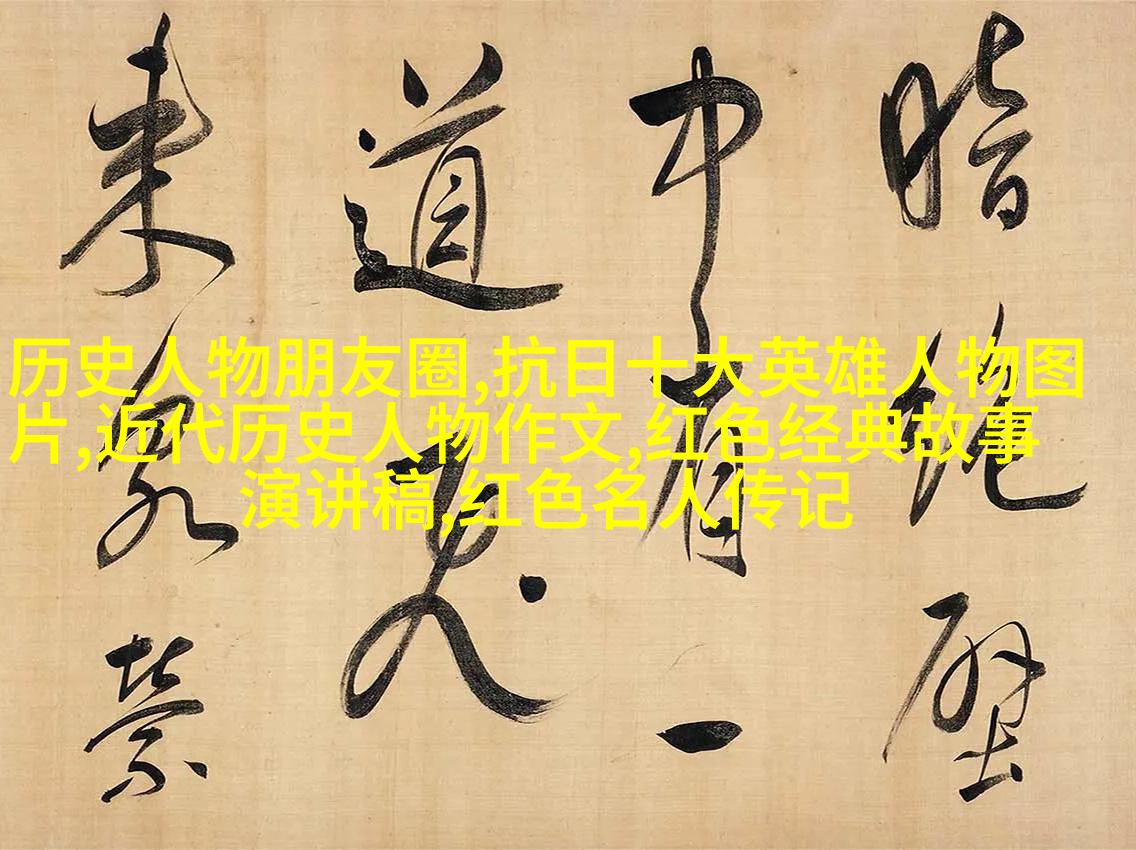 历史人物朋友圈,抗日十大英雄人物图
片,近代历史人物作文,红色经典故事
演讲稿,红色名人传记
暗絕
中有
道飛
来泉縈